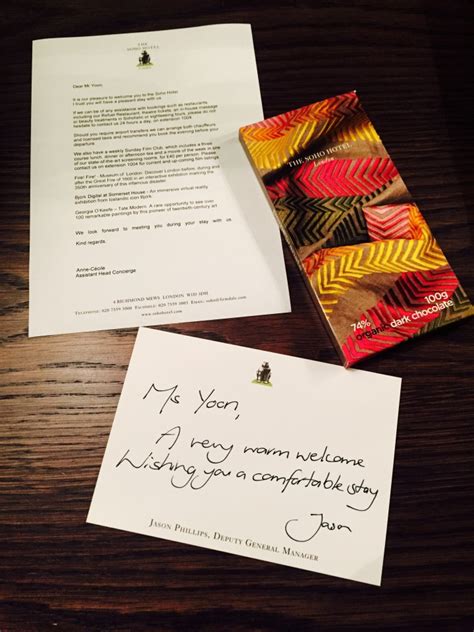 THE
SOHO HOTEL
Dear Mr Yoon,
It is our pleasure to welcome you to the Soho Hotel.
I trust you will have a pleasant stay with us.
If we can be of any assistance with bookings such as restaurants,
including our Refuel Restaurant, theatre, an in-house massage
or beauty treatments in Soholistin or sightseeing tours, please do not
hesitate to contact us 24 hours a day, on extension 1004.
Should you require airport transfers we can arrange both chauffeurs
and licensed taxis and recommend you book the evening before your
departure.
We also have a weekly Sunday Film Club, which includes a three
course lunch, dinner or afternoon tea and a movie of the week in one
of our state of the art screening rooms, for £40 per person. Please
contact us on extension 1004 for current and up coming film listings
Fire! Fire! - Museum of London. Discover London before, during and
after the Great Fire of 1666 in an interactive exhibition marking the
350th anniversary of this infamous disaster.
Bjork Digital at Somerset House - An immersive virtual reality
exhibition from Icelandic icon Bjork
Georgia O'Keefe - Tate Modern. A rare opportunity to see over
100 remarkable paintings by this pioneer of twentieth-century art
We look forward to meeting you during your stay with us
Kind regards,
Anne-Cécile
Assistant Head Concierge
4 RICHMOND MEWS, LONDON W1D 3DH
TELEPHONE: 020 7559 3000 FACSIMILE: 020 7559 3003
www.sohohotel.com
THE SOHO HOTEL
London
74%
100g
organic dark chocolate
Ms Yoon,
A very warm welcome
Wishing you a comfortable stay
Jason
JASON PHILLIPS, DEPUTY GENERAL MANAGER